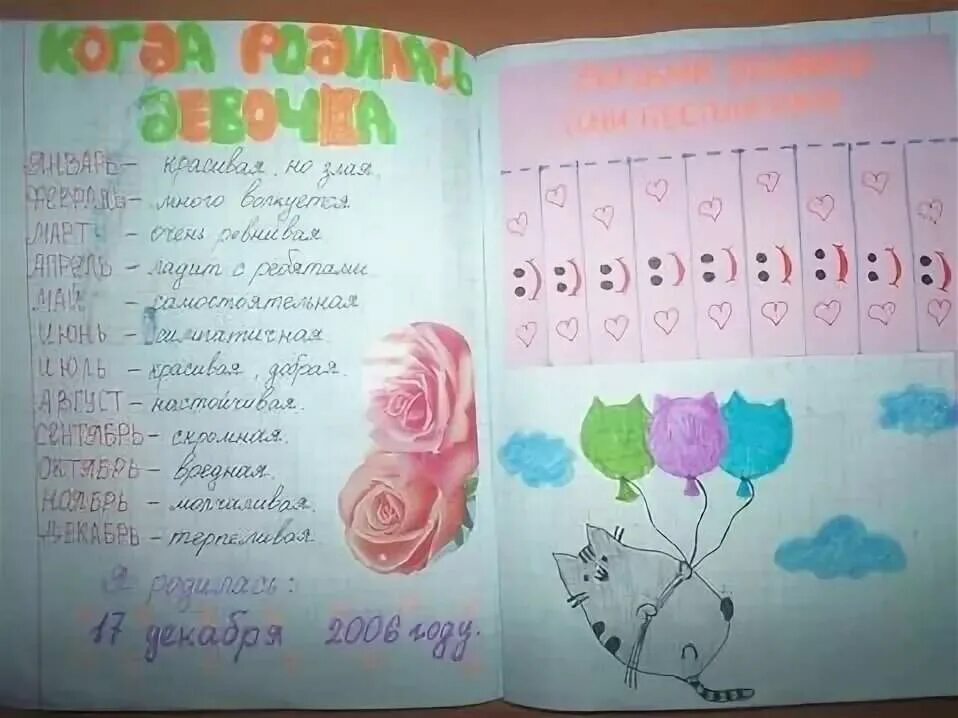 КОГДА РОДИЛАСЬ
ДЕВОЧКА
ЯНВАРЬ - красивая, но злая.
ФЕВРАЛЬ - много волнуется.
МАРТ - очень ревнивая.
АПРЕЛЬ - ладит с ребятами.
МАЙ - самостоятельная
ИЮНЬ - симпатичная.
ИЮЛЬ - красивая, добрая.
АВГУСТ - настойчивая.
СЕНТЯБРЬ - скромная.
ОКТЯБРЬ - вредная.
НОЯБРЬ - молчаливая.
ДЕКАБРЬ - терпеливая.
Я родилась:
17 декабря 2006 году.
ОНИ БЕСПЛАТНЫЕ